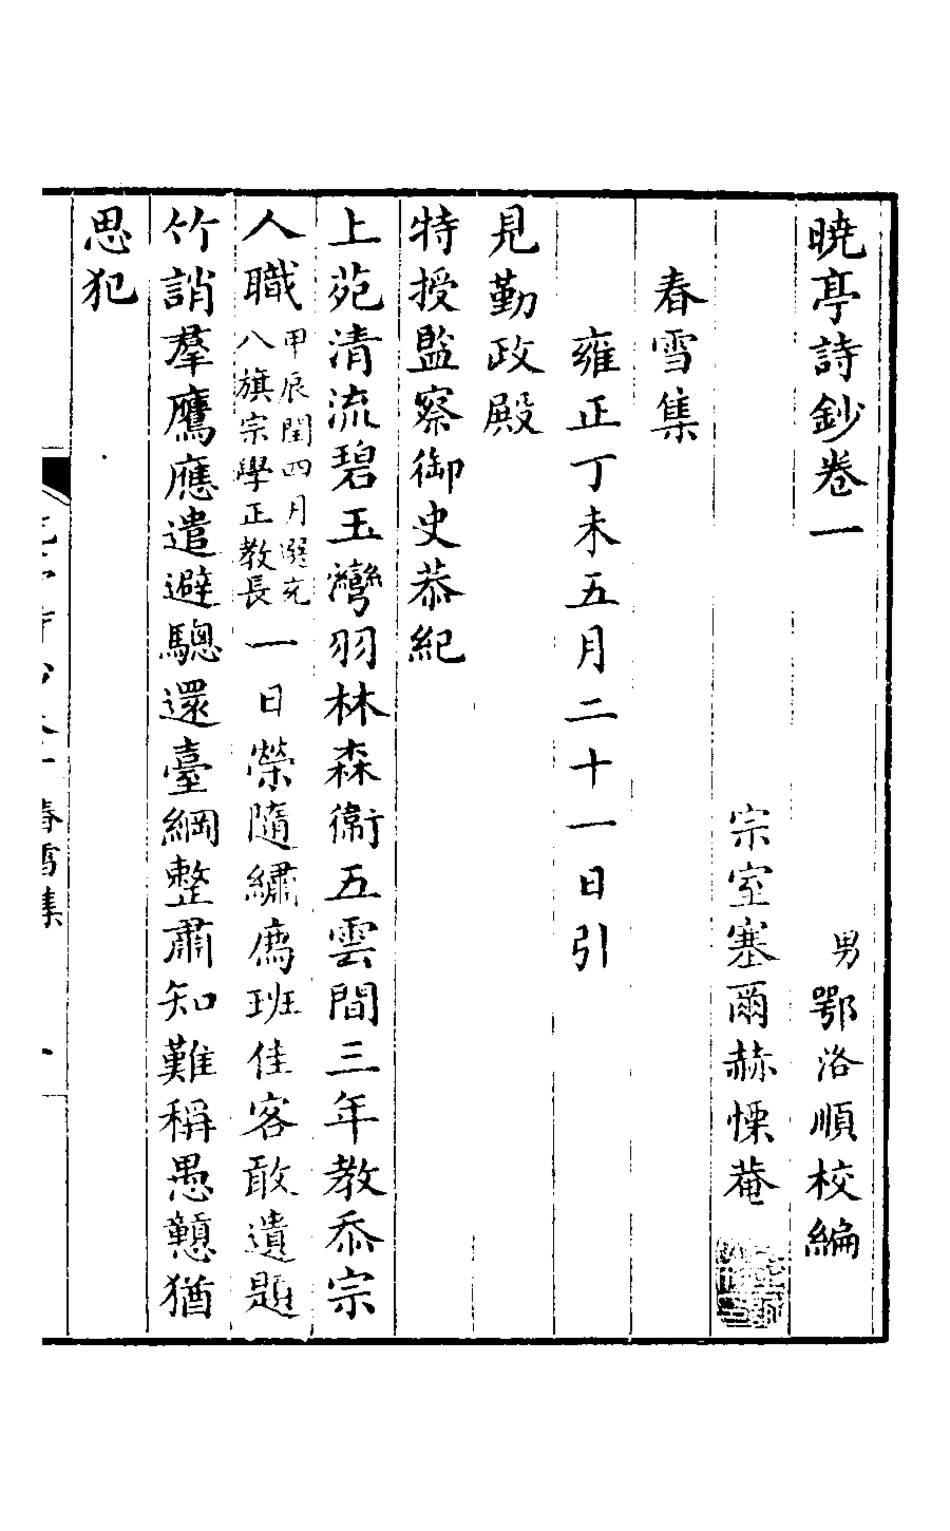 曉亭詩鈔卷一
男鄂洛順校編
宗室塞爾赫慄菴
春雪集
雍正丁未五月二十一日引
見勤政殿
特授監察御史恭紀
上苑清流碧玉灣羽林森衞五雲間三年教忝宗
人職甲辰閏四月選充八旗宗學正教長一日榮隨繡廌班佳客敢遺題
竹誚羣鷹應遣避驄還臺綱整肅知難稱愚戇猶
思犯
春雪集